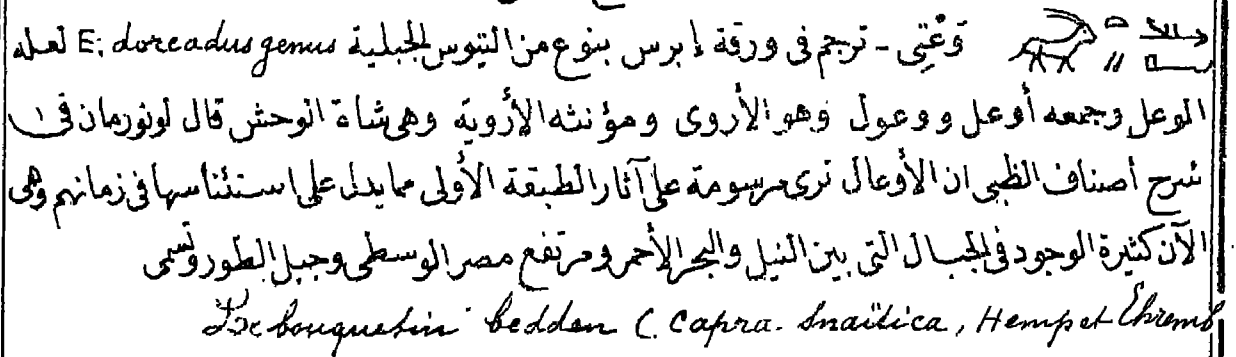 وَعْتِى - ترجم فى ورقة إبرس بنوع من التيوس الجبلية E; dorcadus genus لعله
الوعل وجمعه أوعل ووعول وهو الأروى ومؤنثه الأروية وهى شاة الوحش قال لونورمان فى
شرح أصناف الظبى ان الأوعال ترى مرسومة على آثار الطبقة الأولى مما يدل على استئناسها فى زمانهم وهى
الآن كثيرة الوجود فى الجبال التى بين النيل والبحر الأحمر ومرتفع مصر الوسطى وجبل الطور وتسمى
bouquetin bedden (Capra. Snaïtica, Hemp et Ehremb